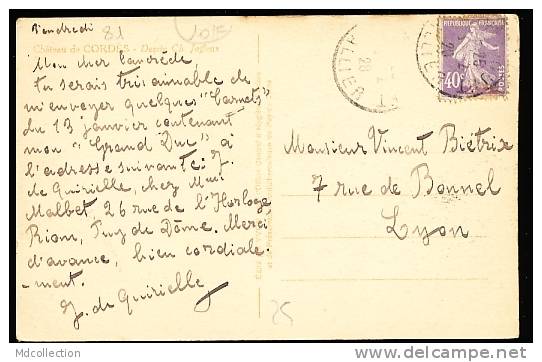 Vendredi
81
Château de CORDES - Dessin Ch. Jaffeux
Mon cher Camarade,
tu serais très aimable de
m'envoyer quelques "Carnets"
du 13 janvier contenant
mon "Grand Duc" à
l'adresse suivante: J.
de Quirielle, chez Mme
Malbet, 26 rue de l'Horloge
Riom, Puy de Dôme. Merci
d'avance, bien cordiale-
-ment.
J. de Quirielle
ALLIER
28
40c
POSTES
Monsieur Vincent Biétrix
7 rue de Bonnel
Lyon
25
Mdcollection
www.delcampe.net